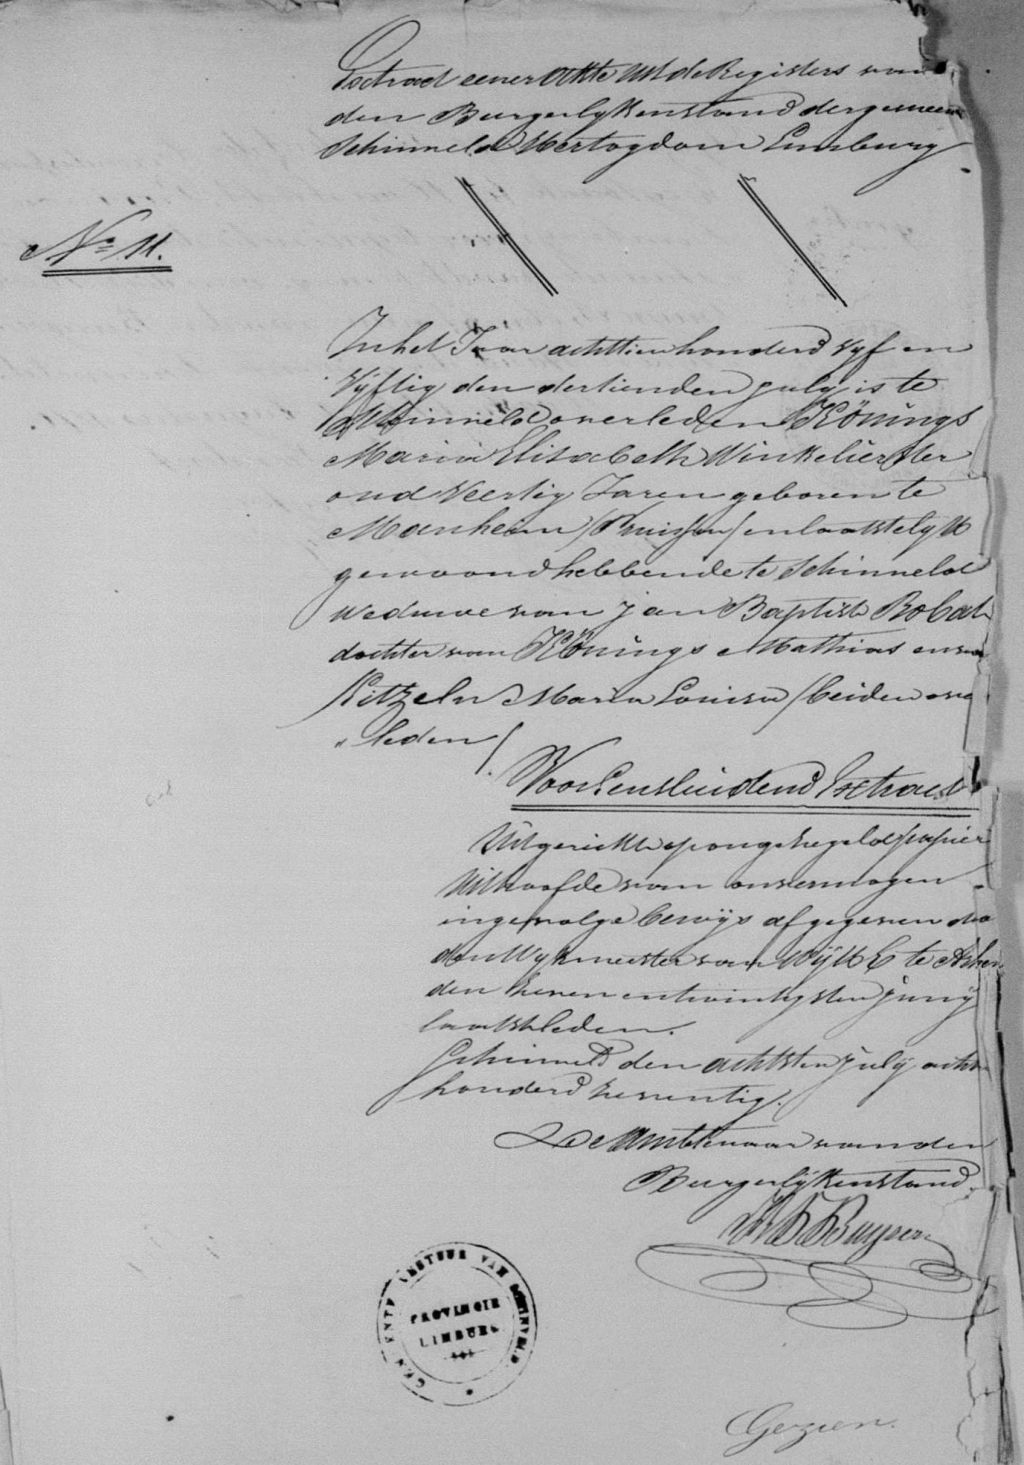 Extract eener Akte uit de Registers van
den Burgerlyken stand der gemeen
Schinveld Hertogdom Limburg
No 11.
In het Jaar achttien honderd vyf en
Vijftig den dertienden july is te
Schinveld overleden Könings
Maria Elisabeth Winkelierster
oud Veertig Jaren geboren te
Manheim /Pruissen/ en laatstelyk
gewoond hebbende te Schinveld
Weduwe van jan Baptist
dochter van Könings Mathias en van
Maria Louisa /beiden over
"leden/.
Voor Eensluidend Extract
Uitgereikt op ongezegeld papier
Uit hoofde van onvermogen
ingevolge bewijs afgegeven door
den Wykmeester van Wijk C te
den zeven en twintigsten junij
laatstleden.
Schinveld den achtsten july acht
honderd zeventig.
De Ambtenaar van den
Burgerlijken stand.
GEMEENTE BESTUUR VAN SCHINVELD
PROVINCIE
LIMBURG
Gezien.